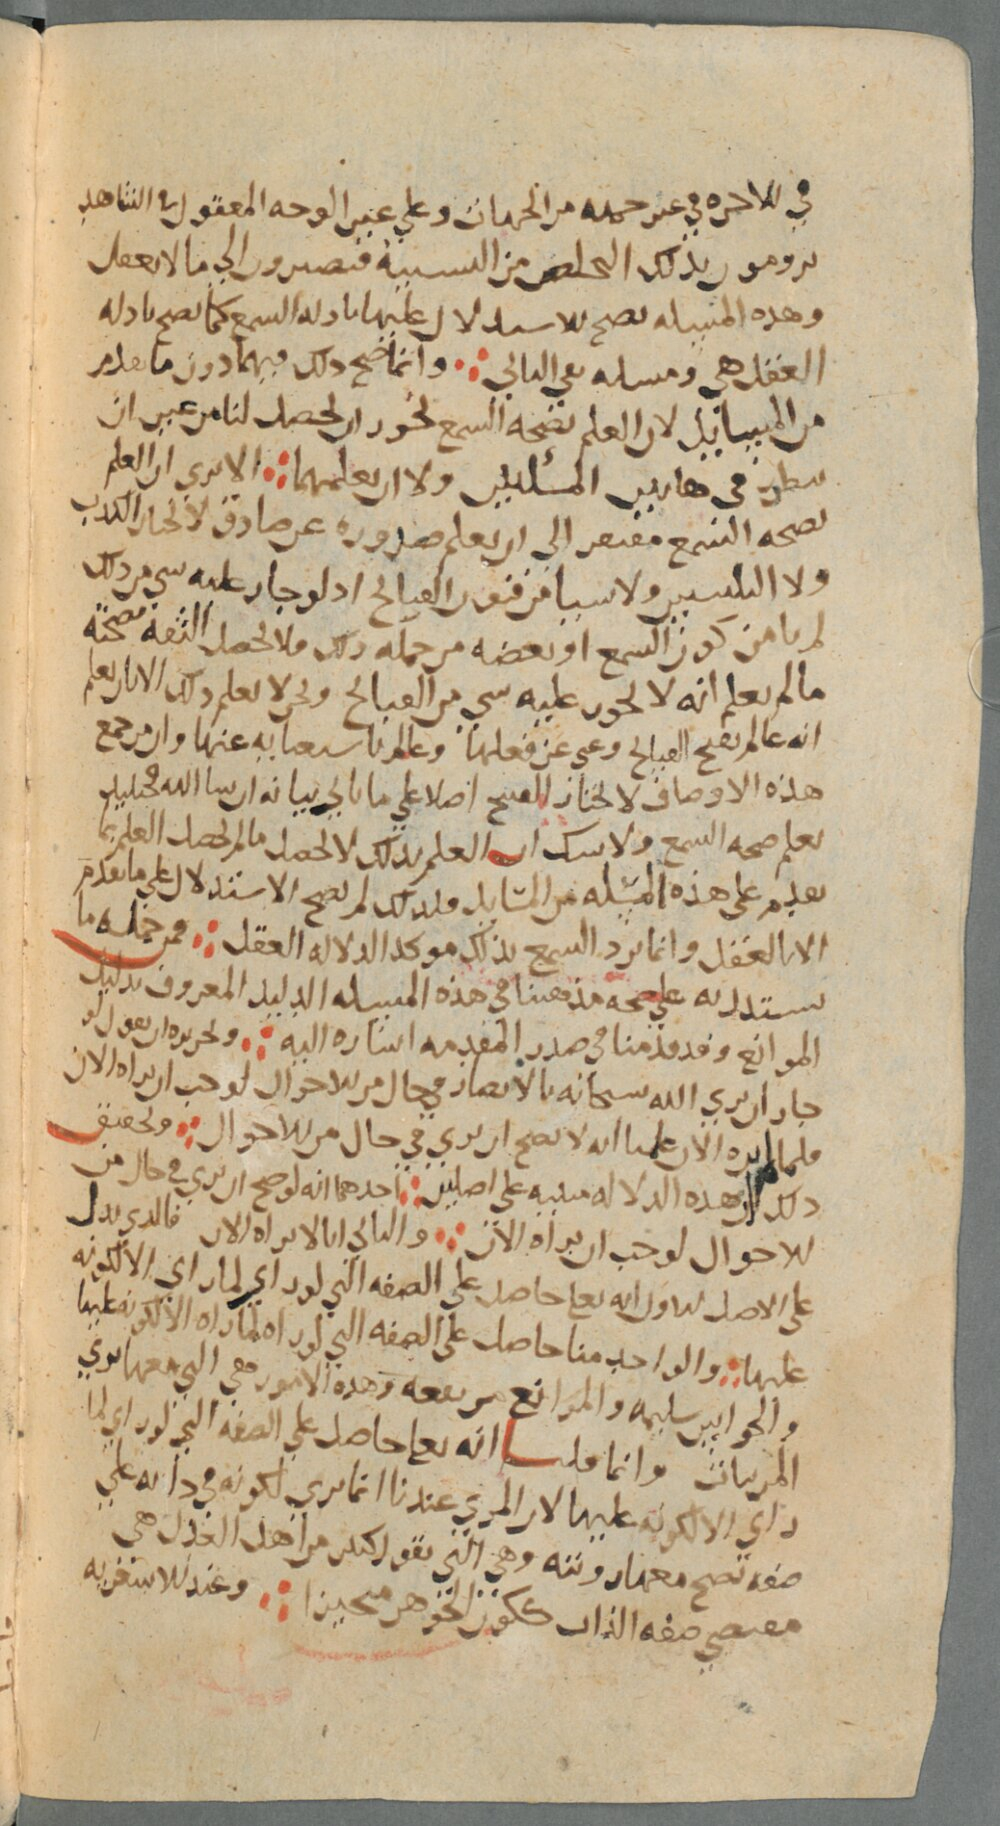 في الاخره في غير جهه من الجهات وعلي غير الوجه المعقول في الشاهد
يرومون بذلك التخلص من التشبيه فيصيرون الي ما لا يعقل
وهذه المسله يصح الاستدلال عليها بادله السمع كما يصح بادله
العقل هي ومسله نفي الثاني ∴ وانما صح ذلك فيهما دون ما تقدم
من المسايل لان العلم بصحه السمع يجوز ان يحصل لنا من غير ان
ننظر في هاتين المسئلتين ولا ان نعلمهما ∴ الا تري ان العلم
بصحه السمع مفتقر الي ان يعلم صدوره عن صادق لا يختار الكذب
ولا التلبيس ولا شيا من فنون القبايح اذ لو جاز عليه شي من ذلك
لم نامن كون السمع او بعضه من جمله ذلك فلا تحصل الثقه بصحته
ما لم يعلم انه لا يجوز عليه شي من القبايح ونحن لا نعلم ذلك الا بان نعلم
انه عالم بقبح القبايح وغني عن فعلها وعالم باستغنايه عنها وان من جمع
هذه الاوصاف لا يختار القبيح اصلا علي ما ياتي بيانه ان شا الله فحينيذ
يعلم صحه السمع ولا شك ان العلم بذلك لا يحصل ما لم يحصل العلم بما
تقدم على هذه المسئله من المسايل فلذلك لم يصح الاستدلال علي ما تقدم
الا بالعقل وانما يرد السمع بذلك موكدا لدلاله العقل ∴ فمن جمله ما
يستدل به علي صحه مذهبنا في هذه المسله الدليل المعروف بدليل
الموانع وقد قدمنا في صدر المقدمه اشاره اليه ∴ وتحريره ان نقول لو
جاز ان يري الله سبحانه بالابصار في حال من الاحوال لوجب ان نراه الان
فلما لم نره الان علمنا انه لا يصح ان يري في حال من الاحوال ∴ وتحقيق
ذلك ان هذه الدلاله مبنيه على اصلين ∴ احدهما انه لو صح ان يري في حال من
الاحوال لوجب ان نراه الان ∴ والثاني انا لا نراه الان فالذي يدل
على الاصل الاول انه تعلي حاصل علي الصفه التي لو راي لما راي الا لكونه
عليها ∴ والواحد منا حاصل على الصفه التي لو راه لما راه الا لكونه عليها
والحواس سليمه والموانع مرتفعه وهذه الامور هي التي معها نري
المريات وانما قلنا انه تعلي حاصل علي الصفه التي لو راي لما
راي الا لكونه عليها لان المري عندنا انما يري لكونه في ذاته علي
صفه تصح معها رويته وهي التي يقول كثير من اهل العدل هي
مقتضي صفه الذات ككون الجوهر متحيزا ∴ وعند الاشعريه